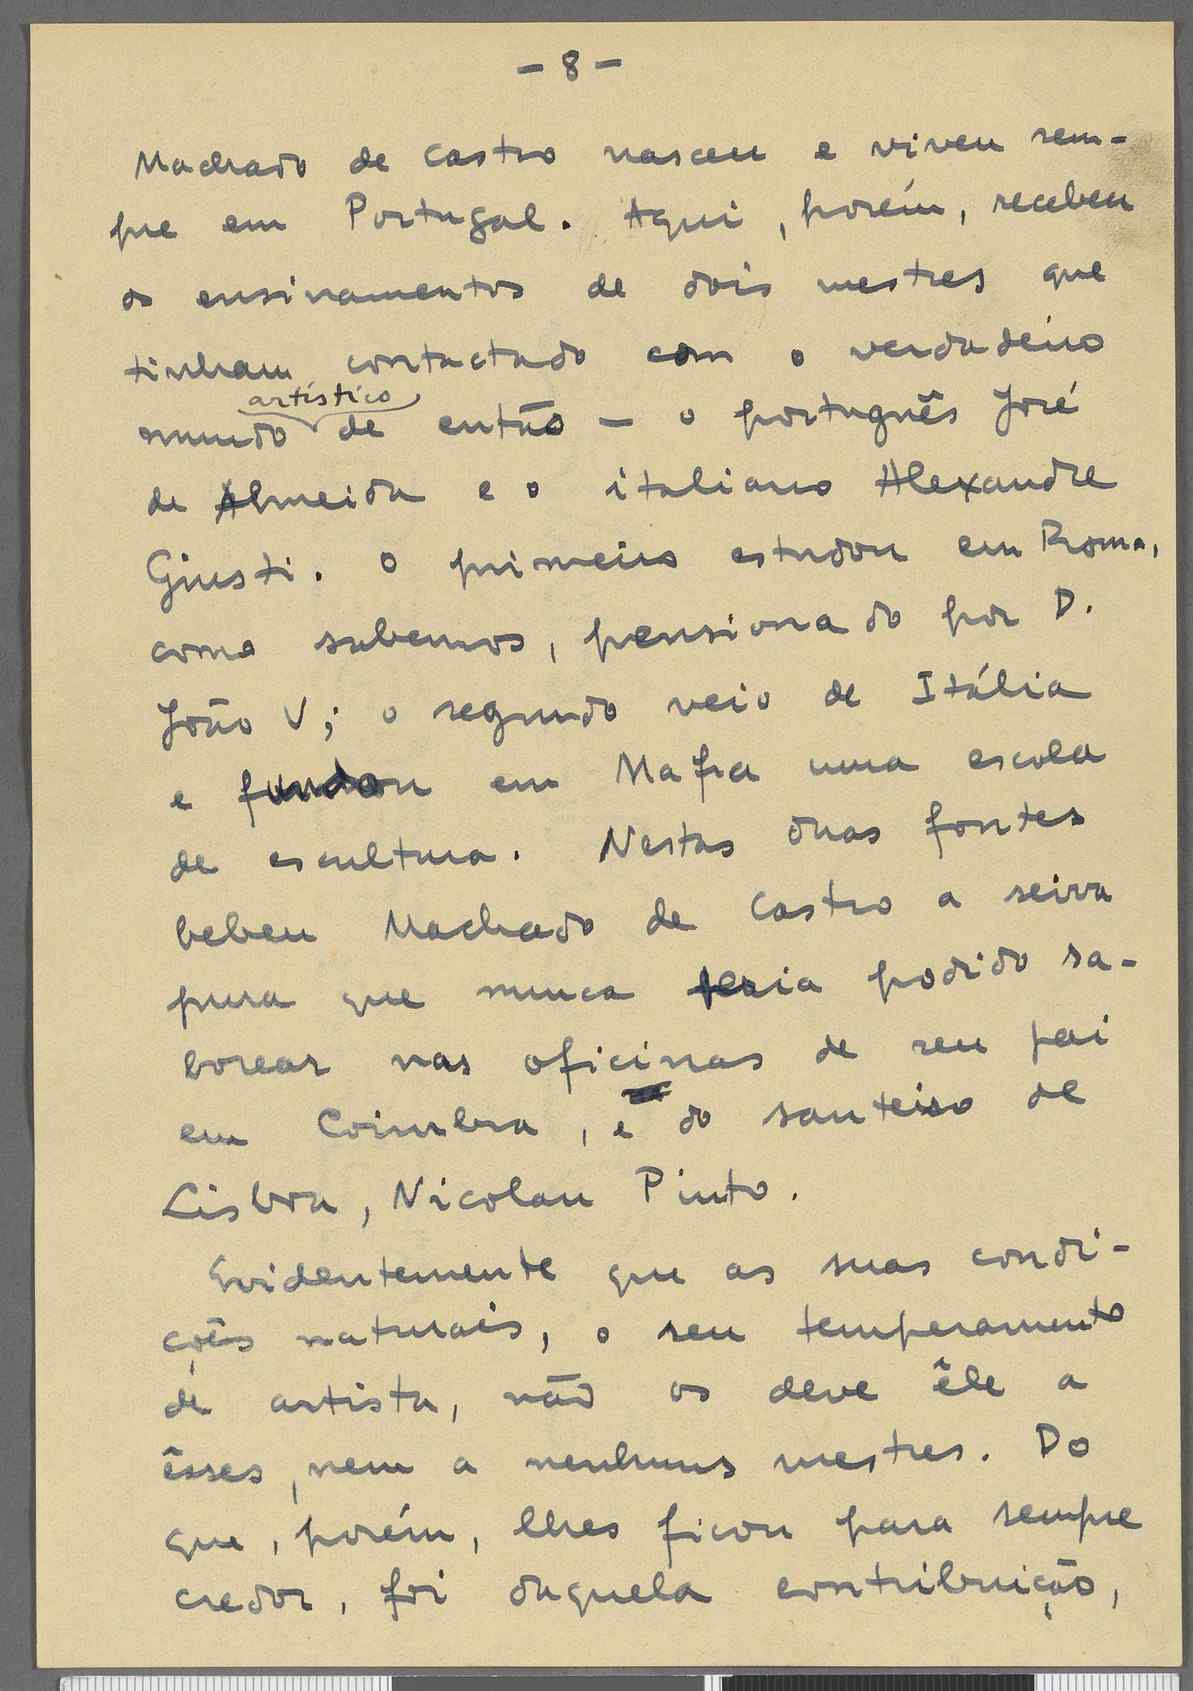 - 8 -
Machado de Castro nasceu e viveu sem-
pre em Portugal. Aqui, porém, recebeu
os ensinamentos de dois mestres que
tinham contactado com o verdadeiro
artístico
mundo de então — o português José
de Almeida e o italiano Alexandre
Giusti. O primeiro estudou em Roma,
como sabemos, pensionado por D.
João V; o segundo veio de Itália
e fundou em Mafra uma escola
de escultura. Nestas duas fontes
bebeu Machado de Castro a seiva
pura que nunca teria podido sa-
borear nas oficinas de seu pai
em Coimbra, e do santeiro de
Lisboa, Nicolau Pinto.
Evidentemente que as suas condi-
ções naturais, o seu temperamento
de artista, não os deve êle a
êsses, nem a nenhuns mestres. Do
que, porém, lhes ficou para sempre
credor, foi daquela contribuição,